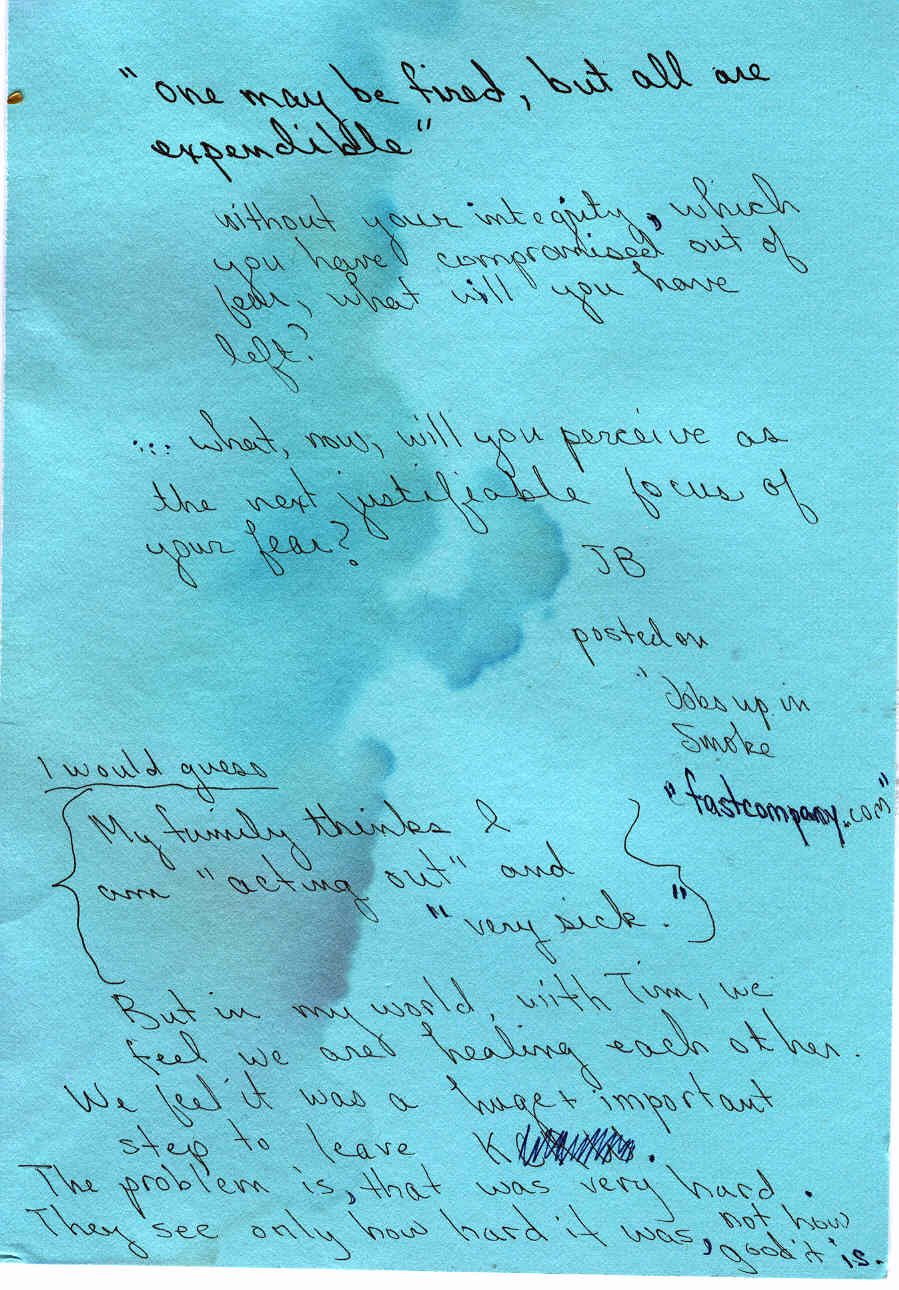 "one may be fired, but all are
expendible"
without your integrity, which
you have compromised out of
fear, what will you have
left?
... what, now, will you perceive as
the next justifiable focus of
your fear?
JB
posted on
"Jobs up in
Smoke
"fastcompany.com"
I would guess
My family thinks I
am "acting out" and
"very sick."
But in my world, with Tim, we
feel we are healing each other.
We feel it was a huge + important
step to leave K
The problem is, that was very hard.
They see only how hard it was, not how
good it is.